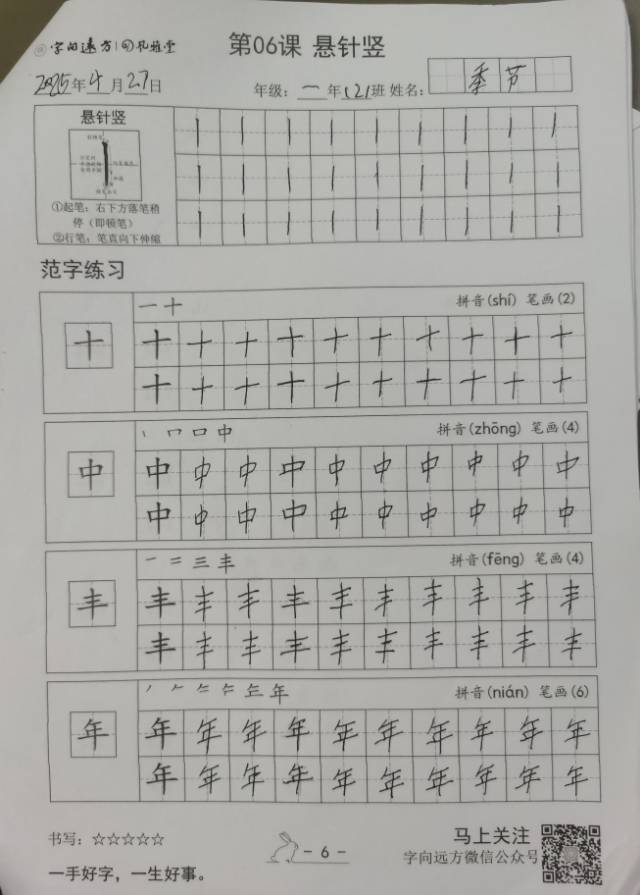 字向远方 | 风雅堂
第06课 悬针竖
2025年4月27日
年级：一年(2)班 姓名： 季节
悬针竖
①起笔：右下方落笔稍
停（即顿笔）
②行笔：笔直向下伸缩
范字练习
一 十
拼音(shí) 笔画(2)
十
十 十 十 十 十 十 十 十 十 十
十 十 十 十 十 十 十 十 十 十
丨 冖 口 中
拼音(zhōng) 笔画(4)
中
中 中 中 中 中 中 中 中 中 中
中 中 中 中 中 中 中 中 中 中
一 二 三 丰
拼音(fēng) 笔画(4)
丰
丰 丰 丰 丰 丰 丰 丰 丰 丰 丰
丰 丰 丰 丰 丰 丰 丰 丰 丰 丰
年
拼音(nián) 笔画(6)
年
年 年 年 年 年 年 年 年 年 年
年 年 年 年 年 年 年 年 年 年
书写：☆☆☆☆☆
- 6 -
马上关注
字向远方微信公众号
一手好字，一生好事。